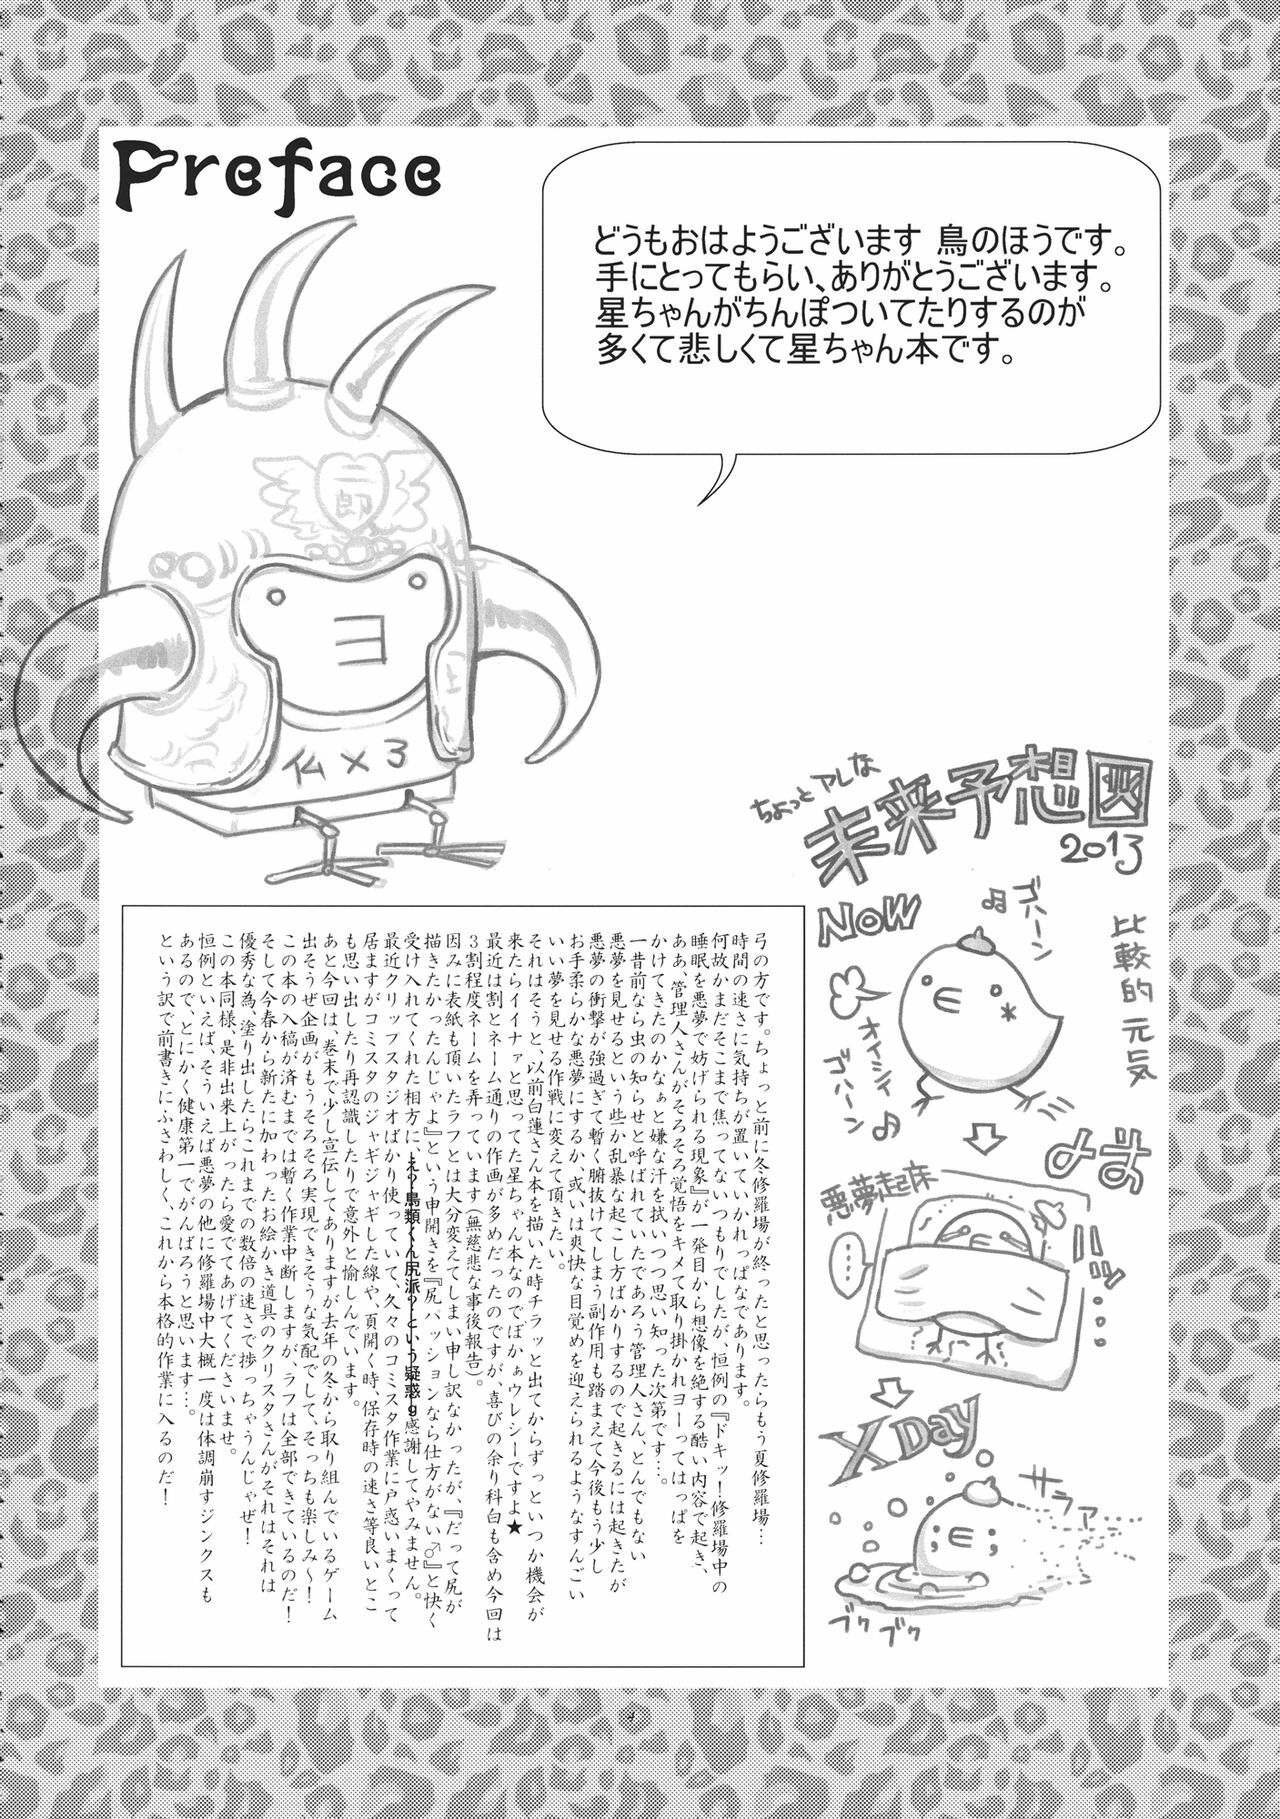 Preface
どうもおはようございます 鳥のほうです。
手にとってもらい、ありがとうございます。
星ちゃんがちんぽついてたりするのが
多くて悲しくて星ちゃん本です。
一郎
ヨ
仏×3
ちょっとアレな
未来予想図
2013
NOW
比較的元気
ゴハーン
オイシイ
ゴハーン
よる
悪夢起床
…
ハッ…
X Day
サラァ…
ブク
ブク
弓の方です。ちょっと前に冬修羅場が終ったと思ったらもう夏修羅場…
時間の速さに気持ちが置いていかれっぱなであります。
何故かまだそこまで焦ってないつもりでしたが、恒例の『ドキッ!修羅場中の
睡眠を悪夢で妨げられる現象』が一発目から想像を絶する酷い内容で起き、
ああ、管理人さんがそろそろ覚悟をキメて取り掛かれヨーってはっぱを
かけてきたのかなぁと嫌な汗を拭いつつ思い知った次第です…。
一昔前なら虫の知らせと呼ばれていたであろう管理人さん、とんでもない
悪夢を見せるという些か乱暴な起こし方ばかりするので起きるには起きたが
悪夢の衝撃が強過ぎて暫く腑抜けてしまう副作用も踏まえて今後もう少し
お手柔らかな悪夢にするか、或いは爽快な目覚めを迎えられるようなすんごい
いい夢を見せる作戦に変えて頂きたい。
それはそうと、以前白蓮さん本を描いた時チラッと出てからずっといつか機会が
来たらイイナァと思ってた星ちゃん本なのでぼかぁウレシーですよ★
最近は割とネーム通りの作画が多めだったのですが、喜びの余り科白も含め今回は
3割程度ネームを弄っています(無慈悲な事後報告)。
因みに表紙も頂いたラフとは大分変えてしまい申し訳なかったが、『だって尻が
描きたかったんじゃよ』という申開きを『尻パッションなら仕方がない♂』と快く
受け入れてくれた相方に え?鳥類くん尻派?という疑惑 g感謝してやみません。
最近クリップスタジオばかり使っていて、久々のコミスタ作業に戸惑いまくって
居ますがコミスタのジャギジャギした線や、頁開く時、保存時の速さ等良いとこ
も思い出したり再認識したりで意外と愉しんでいます。
あと今回は、巻末で少し宣伝してありますが去年の冬から取り組んでいるゲーム
出そうぜ企画がもうそろそろ実現できそうな気配でして、そっちも楽しみ〜!
この本の入稿が済むまでは暫く作業中断しますが、ラフは全部できているのだ!
そして今春から新たに加わったお絵かき道具のクリスタさんがそれはそれは
優秀な為、塗り出したらこれまでの数倍の速さで捗っちゃうんじゃぜ!
この本同様、是非出来上がったら愛でてあげてくださいませ。
恒例といえば、そういえば悪夢の他に修羅場中大概一度は体調崩すジンクスも
あるので、とにかく健康第一でがんばろうと思います…。
という訳で前書きにふさわしく、これから本格的作業に入るのだ!
4